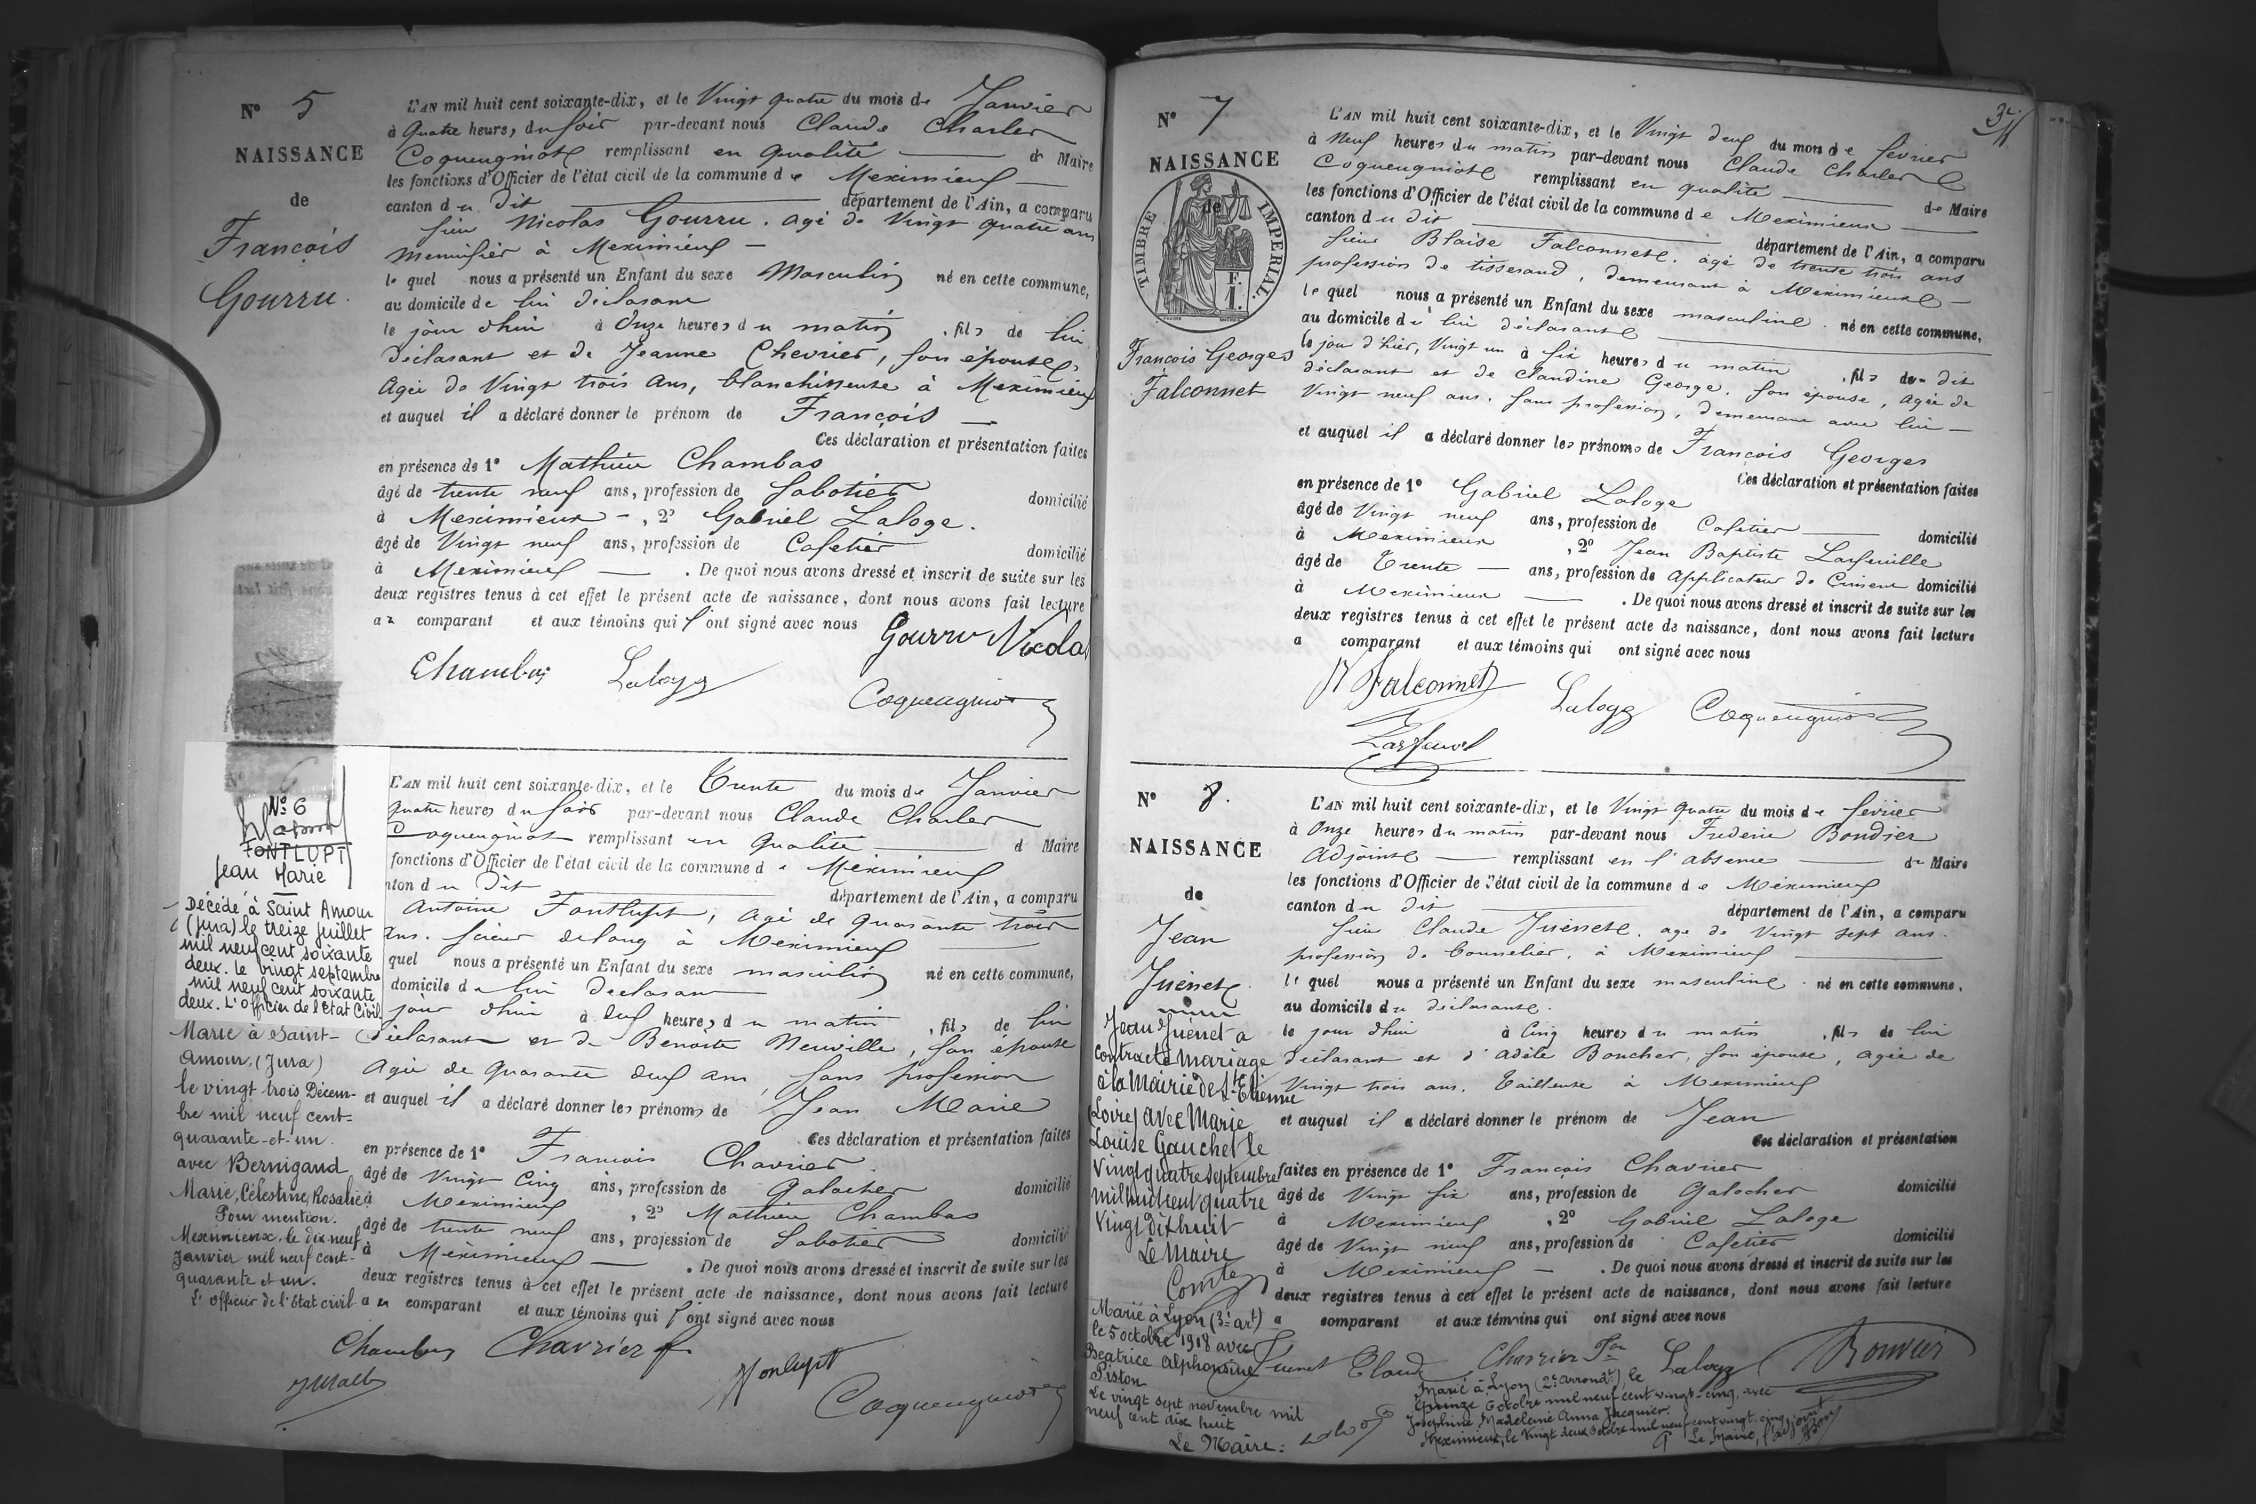 N° 5
NAISSANCE
de
François
Gourru.
L'AN mil huit cent soixante-dix, et le Vingt quatre du mois de Janvier
à quatre heures du soir par-devant nous Claude Charles
Coqueugniot remplissant en qualité de Maire
les fonctions d'Officier de l'état civil de la commune de Meximieux
canton du dit département de l'Ain, a comparu
sieur Nicolas Gourru. agé de Vingt quatre ans
menuisier à Meximieux
lequel nous a présenté un Enfant du sexe Masculin né en cette commune,
au domicile de lui déclarant
le jour d'hui à Onze heures du matin, fils de lui
déclarant et de Jeanne Chevrier, son épouse,
Agée de Vingt trois ans, blanchisseuse à Meximieux
et auquel il a déclaré donner le prénom de François
Ces déclaration et présentation faites
en présence de 1° Mathieu Chambas
âgé de trente neuf ans, profession de Sabotier domicilié
à Meximieux, 2° Gabriel Laloge.
âgé de Vingt neuf ans, profession de Cafetier domicilié
à Meximieux. De quoi nous avons dressé et inscrit de suite sur les
deux registres tenus à cet effet le présent acte de naissance, dont nous avons fait lecture
au comparant et aux témoins qui l'ont signé avec nous
Gourru Nicolas
Chambas Laloge Coqueugniot
N° 6
FONTLUPT
Jean Marie
Décédé à Saint Amour
(Jura) le treize juillet
mil neuf cent soixante
deux. le vingt septembre
mil neuf cent soixante
deux. L'Officier de l'Etat Civil
Marié à Saint-
Amour, (Jura)
le vingt trois Décem-
bre mil neuf cent-
quarante-et-un.
avec Bernigaud
Marie, Célestine, Rosalie
Pour mention.
Meximieux, le dix neuf
Janvier mil neuf cent-
quarante et un.
L'Officier de l'état civil
L'AN mil huit cent soixante-dix, et le Trente du mois de Janvier
quatre heures du soir par-devant nous Claude Charles
Coqueugniot remplissant en qualité d Maire
fonctions d'Officier de l'état civil de la commune de Meximieux
nton du dit département de l'Ain, a comparu
Antoine Fontlupt, agé de quarante trois
ans. scieur de long à Meximieux
quel nous a présenté un Enfant du sexe masculin né en cette commune,
domicile de lui déclarant
jour d'hui à deux heures du matin, fils de lui
déclarant et de Benoite Neuville, son épouse
Agée de quarante deux ans, sans profession
et auquel il a déclaré donner les prénoms de Jean Marie
Ces déclaration et présentation faites
en présence de 1° François Chavrier
âgé de Vingt Cinq ans, profession de Galocher domicilié
à Meximieux, 2° Mathieu Chambas
âgé de trente neuf ans, profession de Sabotier domicilié
à Meximieux. De quoi nous avons dressé et inscrit de suite sur les
deux registres tenus à cet effet le présent acte de naissance, dont nous avons fait lecture
au comparant et aux témoins qui l'ont signé avec nous
Chambas Chavrier f
Fonlupt
Coqueugniot
N° 7
NAISSANCE
de
TIMBRE IMPERIAL.
F.
1.
François Georges
Falconnet
L'AN mil huit cent soixante-dix, et le Vingt deux du mois de février
à Neuf heures du matin par-devant nous Claude Charles
Coqueugniot remplissant en qualité de Maire
les fonctions d'Officier de l'état civil de la commune de Meximieux
canton du dit département de l'Ain, a comparu
sieur Blaise Falconnet. agé de trente trois ans
profession de tisserand, demeurant à Meximieux
lequel nous a présenté un Enfant du sexe masculin. né en cette commune,
au domicile de lui déclarant
le jour d'hier, Vingt un à six heures du matin, fils de dit
déclarant et de Claudine George. son épouse, agée de
Vingt neuf ans. sans profession, demeurant avec lui
et auquel il a déclaré donner les prénoms de François Georges
Ces déclaration et présentation faites
en présence de 1° Gabriel Laloge
âgé de Vingt neuf ans, profession de Cafetier domicilié
à Meximieux, 2° Jean Baptiste Larfeuille
âgé de Trente ans, profession de applicateur de Ciment domicilié
à Meximieux. De quoi nous avons dressé et inscrit de suite sur les
deux registres tenus à cet effet le présent acte de naissance, dont nous avons fait lecture
a comparant et aux témoins qui ont signé avec nous
B Falconnet Laloge Coqueugniot
N° 8.
NAISSANCE
de
Jean
Juénet.
Jean Juénet a
contracté mariage
à la Mairie de St Etienne
(Loire) avec Marie
Louise Gauchet le
vingt quatre septembre
mil huit cent quatre
vingt dix huit
Le Maire
Comte
Marié à Lyon (3e art)
le 5 octobre 1918 avec
Beatrice Alphonsine
Piston
Le vingt sept novembre mil
neuf cent dix huit
Le Maire:
L'AN mil huit cent soixante-dix, et le Vingt quatre du mois de février
à Onze heures du matin par-devant nous Frederic Bouvier
Adjoint remplissant en l'absence de Maire
les fonctions d'Officier de l'état civil de la commune de Meximieux
canton du dit département de l'Ain, a comparu
sieur Claude Juénet. age de Vingt sept ans.
profession de tonnelier. à Meximieux
lequel nous a présenté un Enfant du sexe masculin. né en cette commune,
au domicile du déclarant.
le jour d'hui à Cinq heures du matin, fils de lui
déclarant et d'Adèle Boucher, son épouse, agée de
Vingt trois ans. Tailleuse à Meximieux
et auquel il a déclaré donner le prénom de Jean
Ces déclaration et présentation
faites en présence de 1° François Chavrier
âgé de Vingt six ans, profession de Galocher domicilié
à Meximieux, 2° Gabriel Laloge
âgé de Vingt neuf ans, profession de Cafetier domicilié
à Meximieux. De quoi nous avons dressé et inscrit de suite sur les
deux registres tenus à cet effet le présent acte de naissance, dont nous avons fait lecture
a comparant et aux témoins qui ont signé avec nous
Juenet Claude Chavrier Laloge Bouvier
Marié à Lyon (2e arrondt), le
quinze Octobre mil neuf cent vingt-cinq, avec
Joséphine Madeleine Anna Jacquier.
Meximieux, le vingt deux octobre mil neuf cent vingt-cinq
Le Maire,